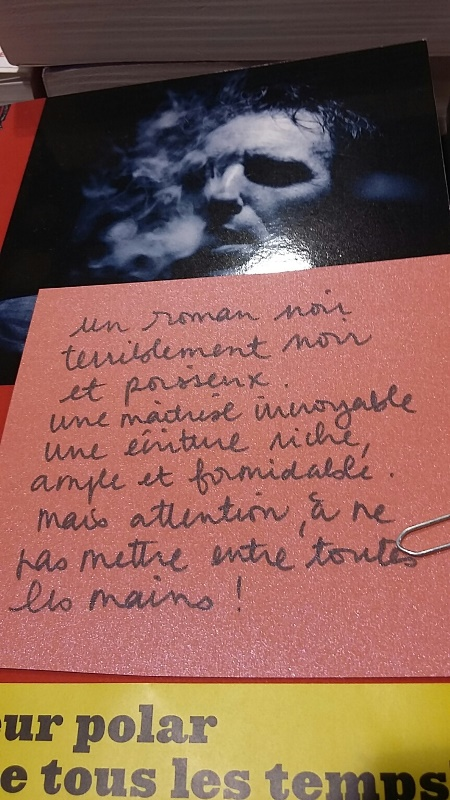 un roman noir
terriblement noir
et poisseux.
une maîtrise incroyable
une écriture riche,
ample et formidable.
mais attention, à ne
pas mettre entre toutes
les mains !
eur polar
e tous les temps